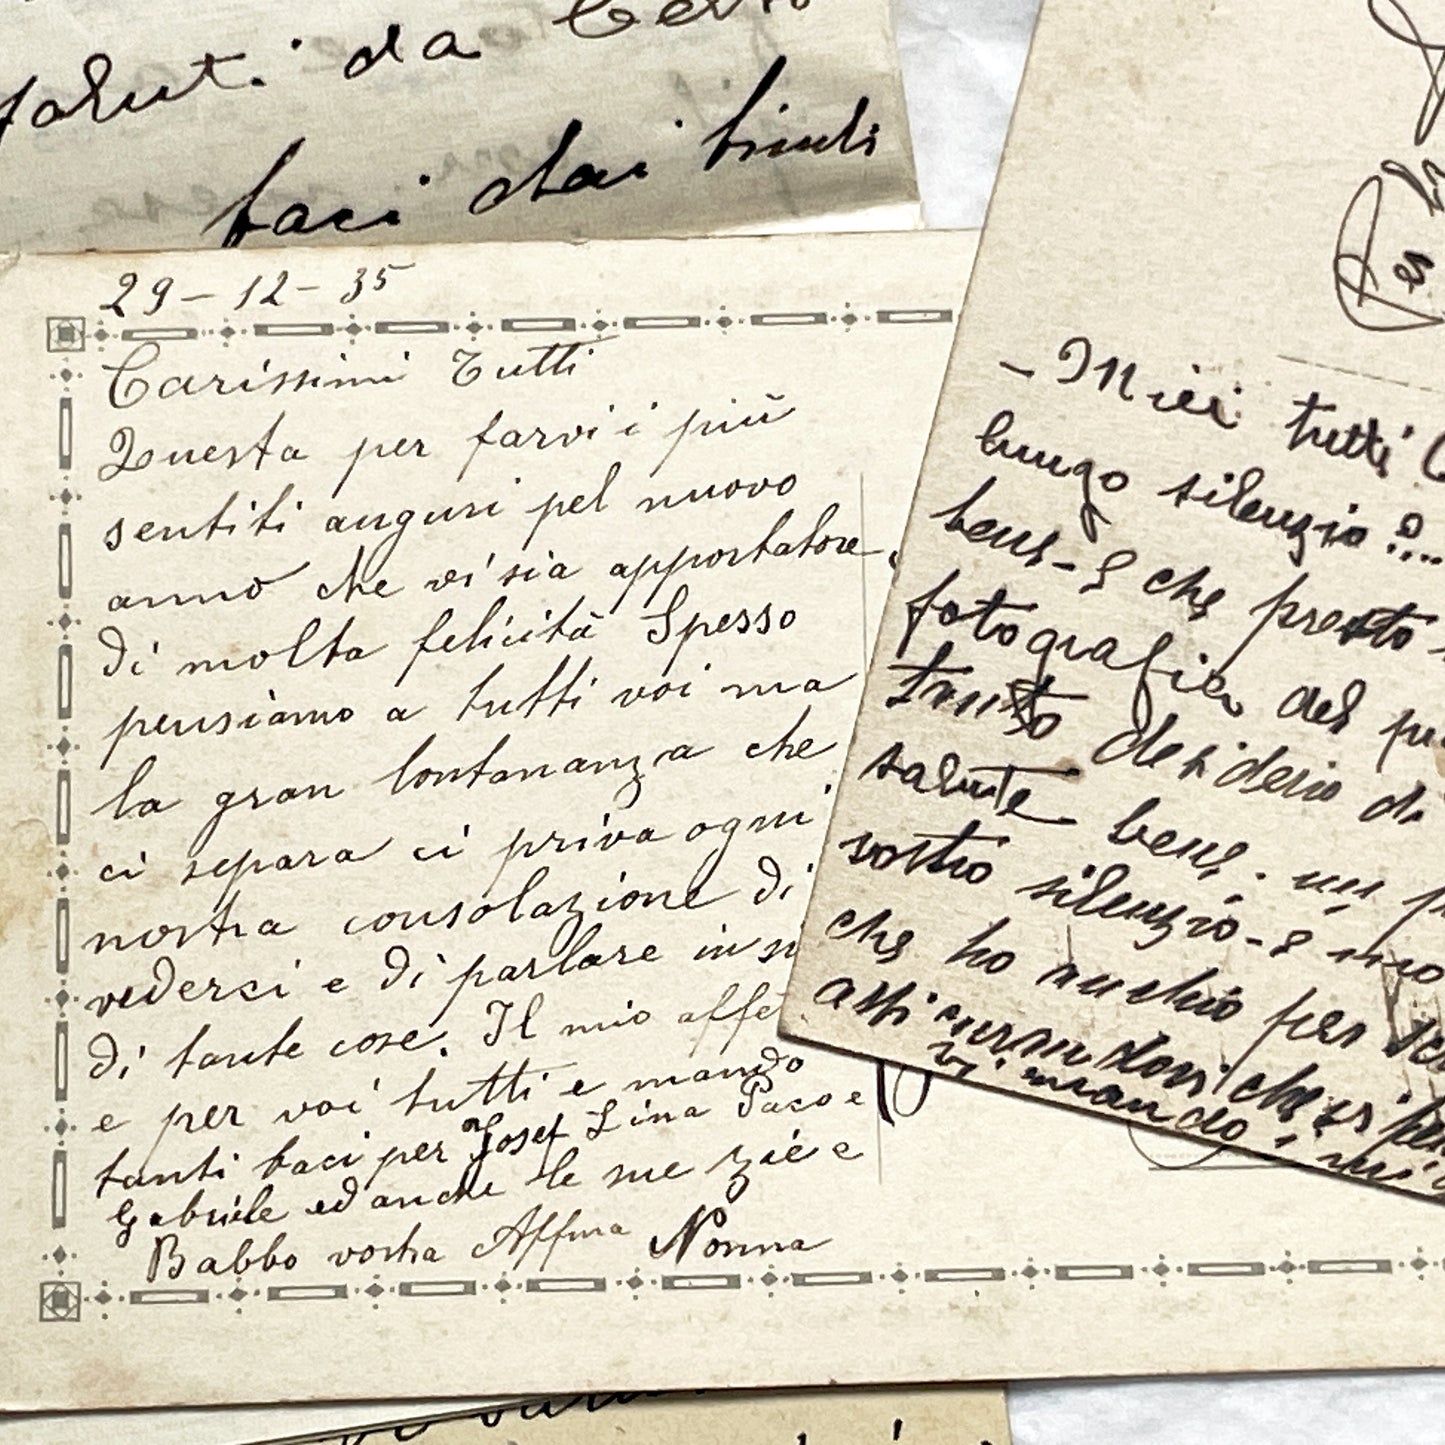 saluti da
baci dai
29-12-35
Carissimi Tutti
Questa per farvi i più
sentiti auguri pel nuovo
anno che vi sia apportatore
di molta felicità Spesso
pensiamo a tutti voi ma
la gran lontananza che
ci separa ci priva ogni
nostra consolazione di
vederci e di parlare in
di tante cose. Il mio affe
e per voi tutti e mando
tanti baci per Josef Lina e
Gabriele ed anche le sue zie e
Babbo vostra Affma Nonna
- Miei tutti
lungo silenzio?...
bene - e che presto
fotografia del
tanto desiderio di
salute bene; un
vostro silenzio - e mio
che ho per
assicurandovi che
vi mando i